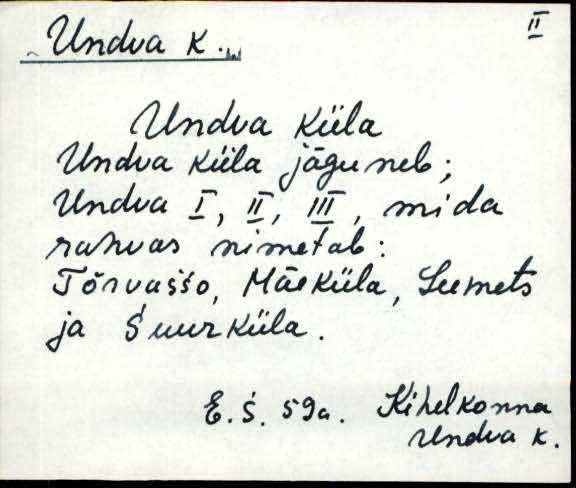 II
Undva k.
Undva küla
Undva küla jäguneb;
Undva I, II, III, mida
rahvas nimetab:
Tõrvaśśo, Mäeküla, Leemets
ja Śuurküla.
E. Ś. 59a. Kihelkonna
Undva k.